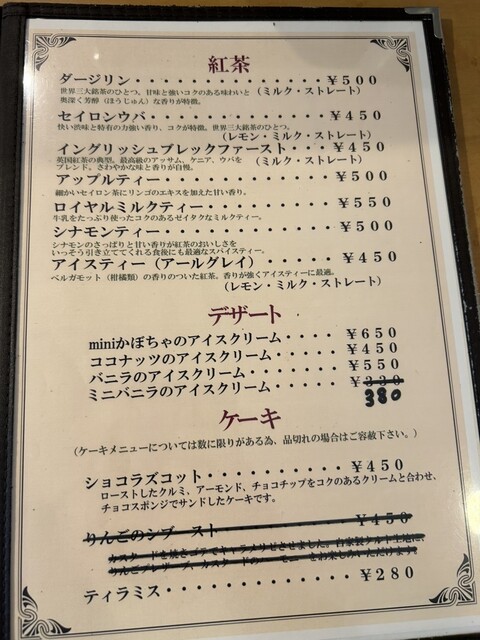 紅茶
ダージリン・・・・・・・・・・・・・・・¥500
世界三大銘茶のひとつ。甘味と強いコクのある味わいと (ミルク・ストレート)
奥深く芳醇(ほうじゅん)な香りが特徴。
セイロンウバ・・・・・・・・・・・・・・¥450
快い渋味と特有の力強い香り、コクが特徴。世界三大銘茶のひとつ。
(レモン・ミルク・ストレート)
イングリッシュブレックファースト・・・¥450
英国紅茶の典型。最高級のアッサム、ケニア、ウバを (ミルク・ストレート)
ブレンド。さわやかな味と香りが自慢。
アップルティー・・・・・・・・・・・・¥500
細かいセイロン茶にリンゴのエキスを加えた甘い香り。
ロイヤルミルクティー・・・・・・・・・¥550
牛乳をたっぷり使ったコクのあるゼイタクなミルクティー。
シナモンティー・・・・・・・・・・・・¥500
シナモンのさっぱりと甘い香りが紅茶のおいしさを
いっそう引き立ててくれる食後にも最適なスパイスティー。
アイスティー(アールグレイ)・・・・・¥450
ベルガモット(柑橘類)の香りのついた紅茶。香りが強くアイスティーに最適。
(レモン・ミルク・ストレート)
デザート
miniかぼちゃのアイスクリーム・・・・¥650
ココナッツのアイスクリーム・・・・・¥450
バニラのアイスクリーム・・・・・・・¥550
ミニバニラのアイスクリーム・・・・・¥330
380
ケーキ
(ケーキメニューについては数に限りがある為、品切れの場合はご容赦下さい。)
ショコラズコット・・・・・・・・・・¥450
ローストしたクルミ、アーモンド、チョコチップをコクのあるクリームと合わせ、
チョコスポンジでサンドしたケーキです。
りんごのシブースト ¥450
ティラミス・・・・・・・・・・・・・¥280